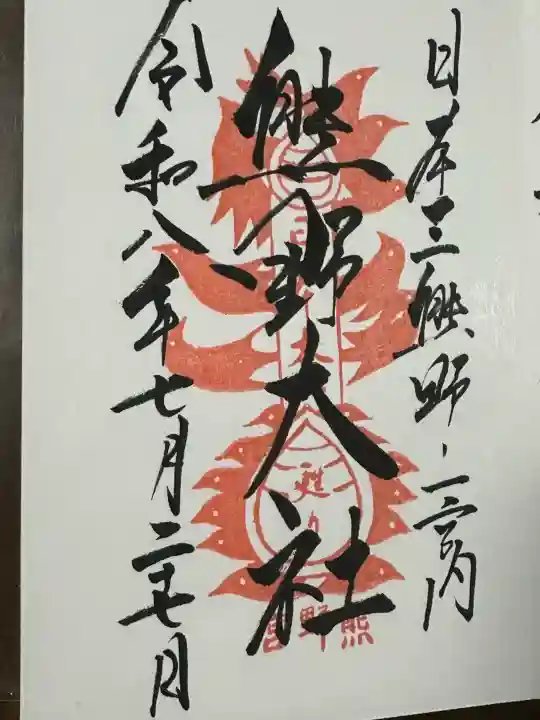 日本三熊野ノ一宮内
熊野大社
令和八年七月二十七月
熊野宮